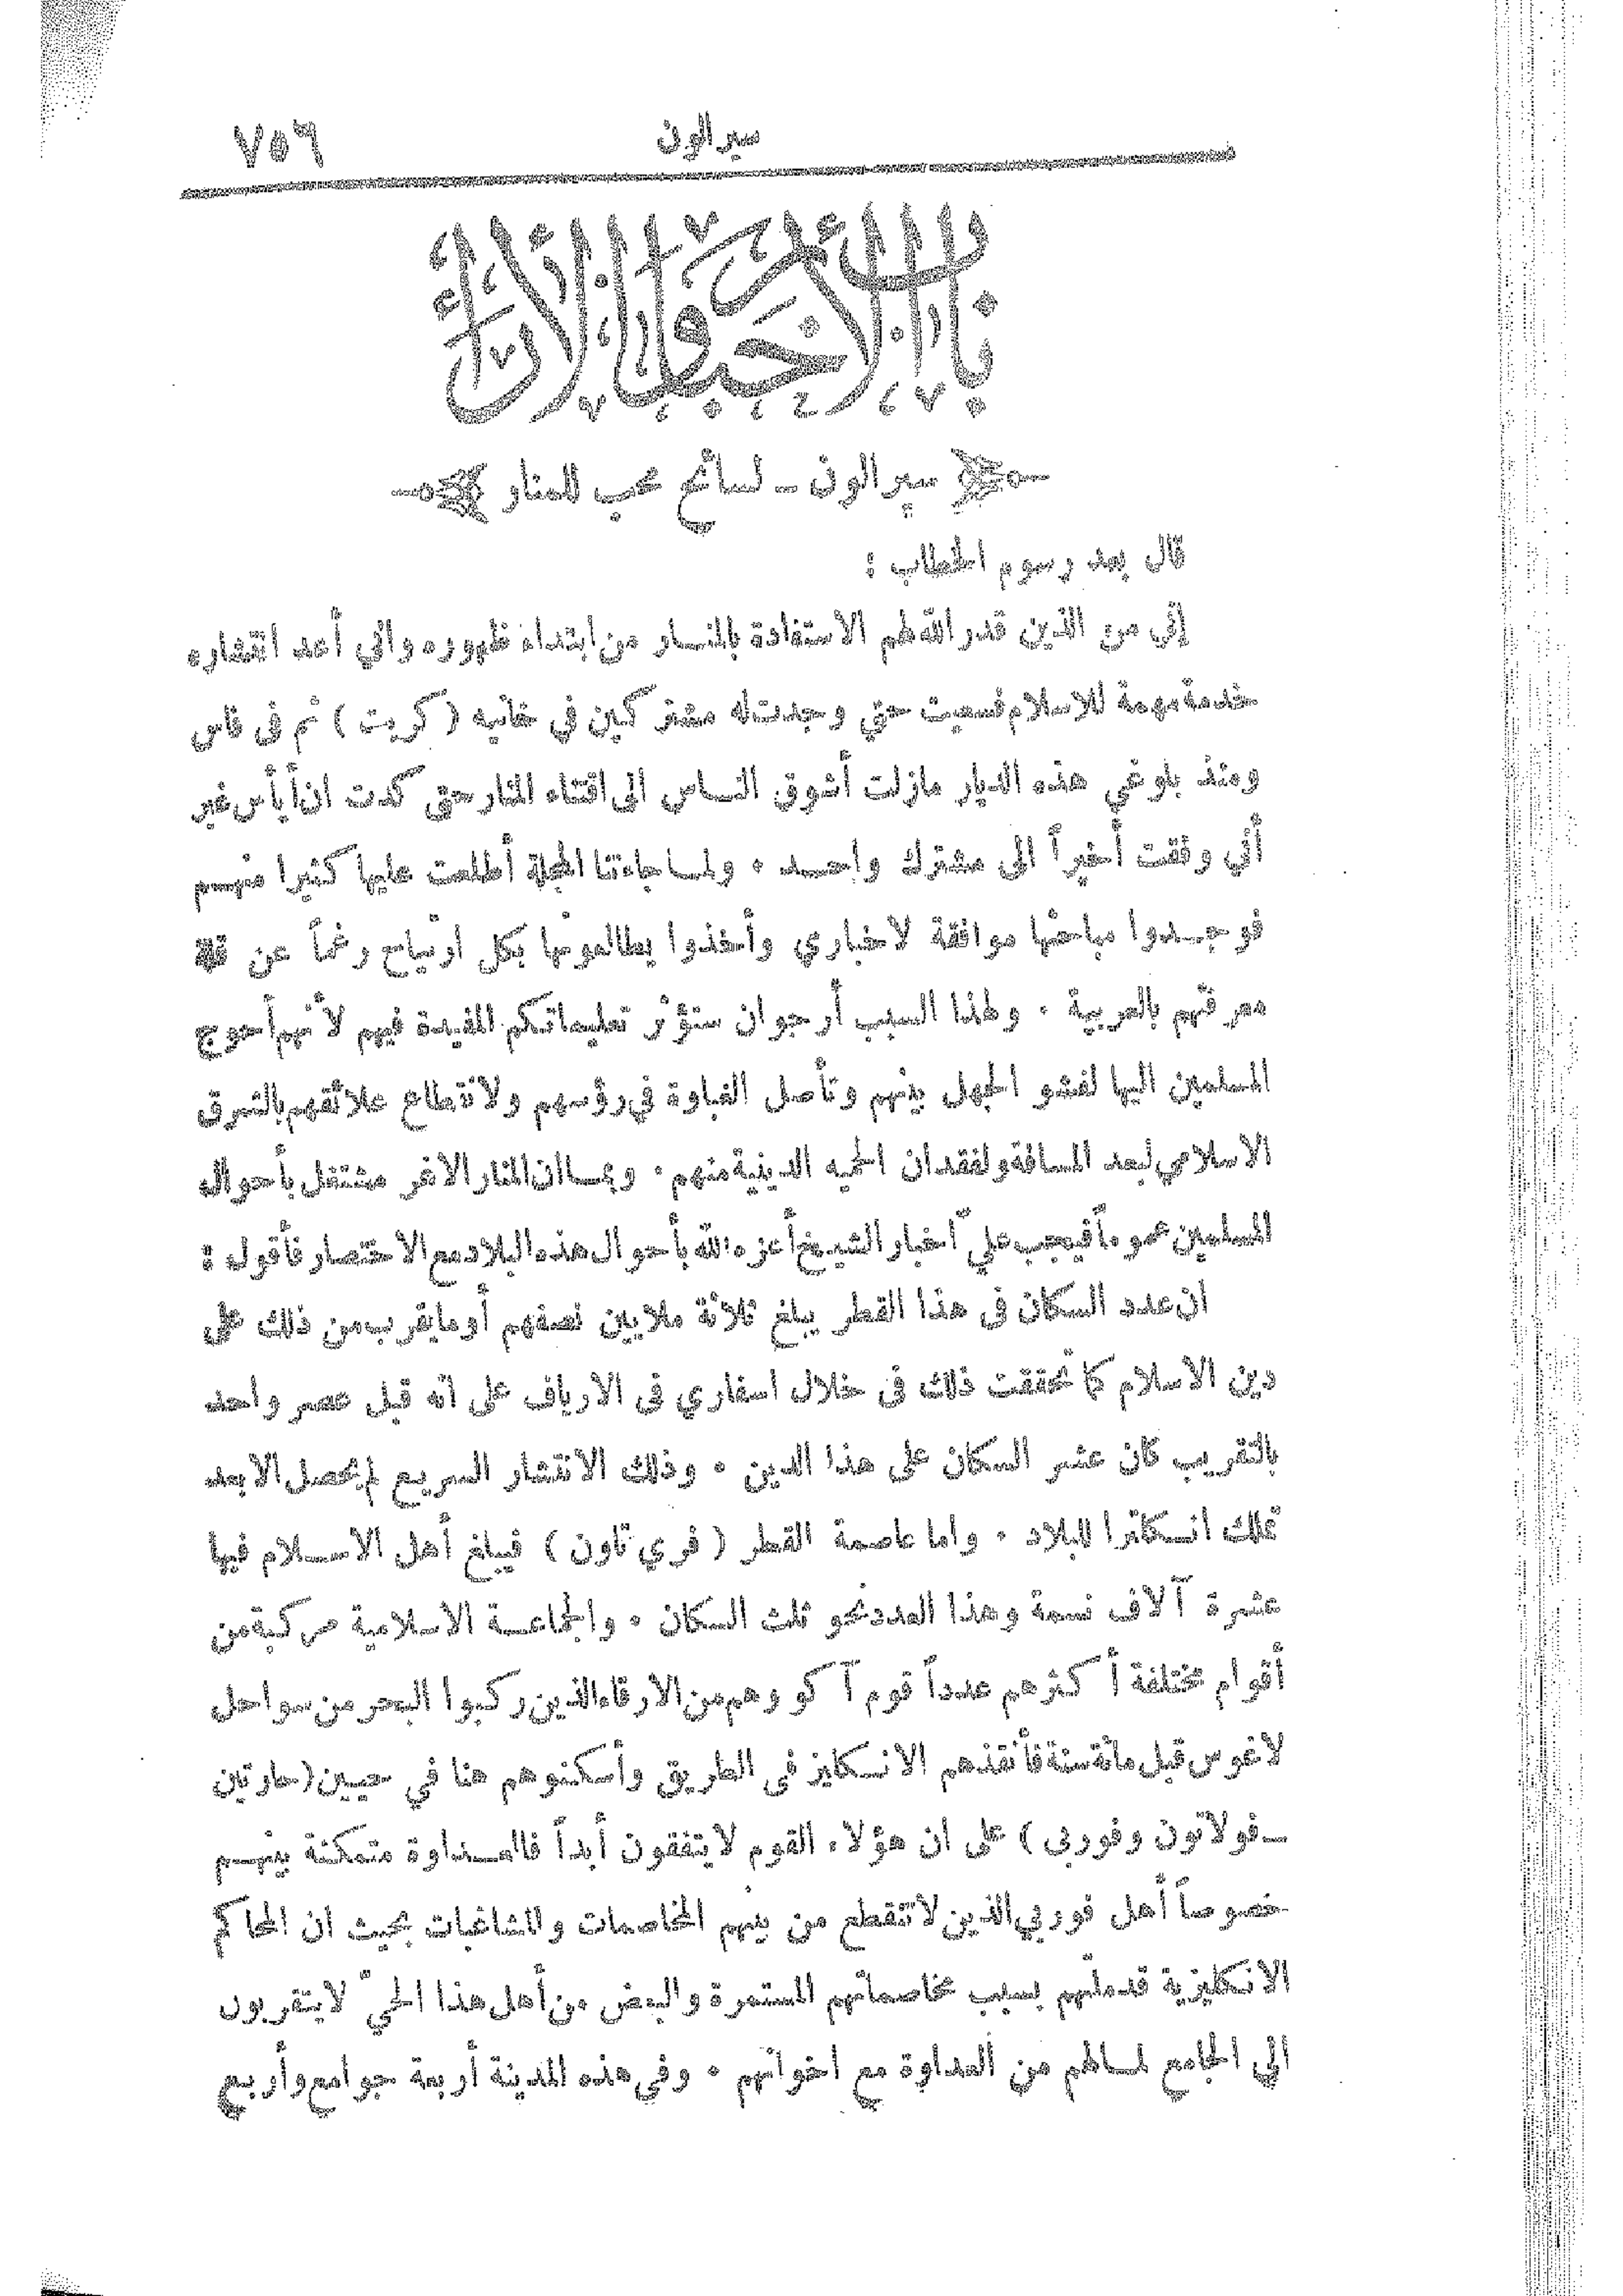 سيرالون ٧٥٦
باب الأخبار والآراء
سيرالون – لسائح محب للمنار
قال بعد رسوم الخطاب :
إني من الذين قدر الله لهم الاستفادة بالمنار من ابتداء ظهوره واني أعد انتشاره
خدمة مهمة للاسلام فسعيت حتى وجدت له مشتركين في خانيه ( كريت ) ثم فى فاس
ومنذ بلوغي هذه الديار مازلت أشوق الناس الى اقتناء المنار حتى كدت ان أيأس غير
أني وفقت أخيراً الى مشترك واحد . ولما جاءتنا المجلة أطلعت عليها كثيرا منهم
فوجدوا مباحثها موافقة لاخباري وأخذوا يطالعونها بكل ارتياح رغماً عن قلة
معرفتهم بالعربية . ولهذا السبب أرجو ان ستؤثر تعليماتكم المفيدة فيهم لأنهم أحوج
المسلمين اليها لفشو الجهل بينهم وتأصل الغباوة في رؤسهم ولانقطاع علائقهم بالشرق
الاسلامي لبعد المسافة ولفقدان الحميه الدينية منهم . وبما ان المنار الاغر مشتغل بأحوال
المسلمين عموماً فيجب عليّ اخبار الشيخ أعزه الله بأحوال هذه البلاد مع الاختصار فأقول :
ان عدد السكان فى هذا القطر يبلغ ثلاثة ملايين نصفهم أو ما يقرب من ذلك على
دين الاسلام كما تحققت ذلك فى خلال اسفاري فى الارياف على انه قبل عصر واحد
بالتقريب كان عشر السكان على هذا الدين . وذلك الانتشار السريع لم يحصل الا بعد
تملك انكلترا للبلاد . واما عاصمة القطر ( فري تاون ) فيبلغ أهل الاسلام فيها
عشرة آلاف نسمة وهذا العدد نحو ثلث السكان . والجماعة الاسلامية مركبة من
أقوام مختلفة أكثرهم عدداً قوم آكو وهم من الارقاء الذين ركبوا البحر من سواحل
لاغوس قبل مائة سنة فأنقذهم الانكليز فى الطريق وأسكنوهم هنا في حيين (حارتين
– فولاتون وفوربى ) على ان هؤلاء القوم لا يتفقون أبداً فالعداوة متمكنة بينهم
خصوصاً أهل فوربي الذين لا تنقطع من بينهم المخاصمات والمشاغبات بحيث ان المحاكم
الانكليزية قد ملتهم بسبب مخاصماتهم المستمرة والبعض من أهل هذا الحيّ لا يتقربون
الي الجامع لما لهم من العداوة مع اخوانهم . وفي هذه المدينة أربعة جوامع وأربع